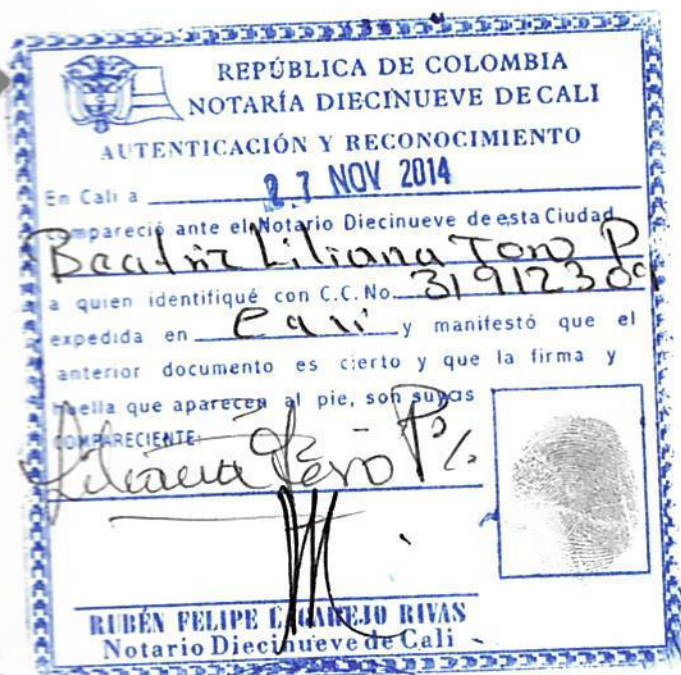 REPÚBLICA DE COLOMBIA
NOTARÍA DIECINUEVE DE CALI
AUTENTICACIÓN Y RECONOCIMIENTO
En Cali a 27 NOV 2014
compareció ante el Notario Diecinueve de esta Ciudad
Beatriz Liliana Toro P
a quien identifiqué con C.C. No. 31912309
expedida en Cali y manifestó que el
anterior documento es cierto y que la firma y
huella que aparecen al pie, son suyas
COMPARECIENTE:
Liliana Toro P
RUBÉN FELIPE RIVAS
Notario Diecinueve de Cali